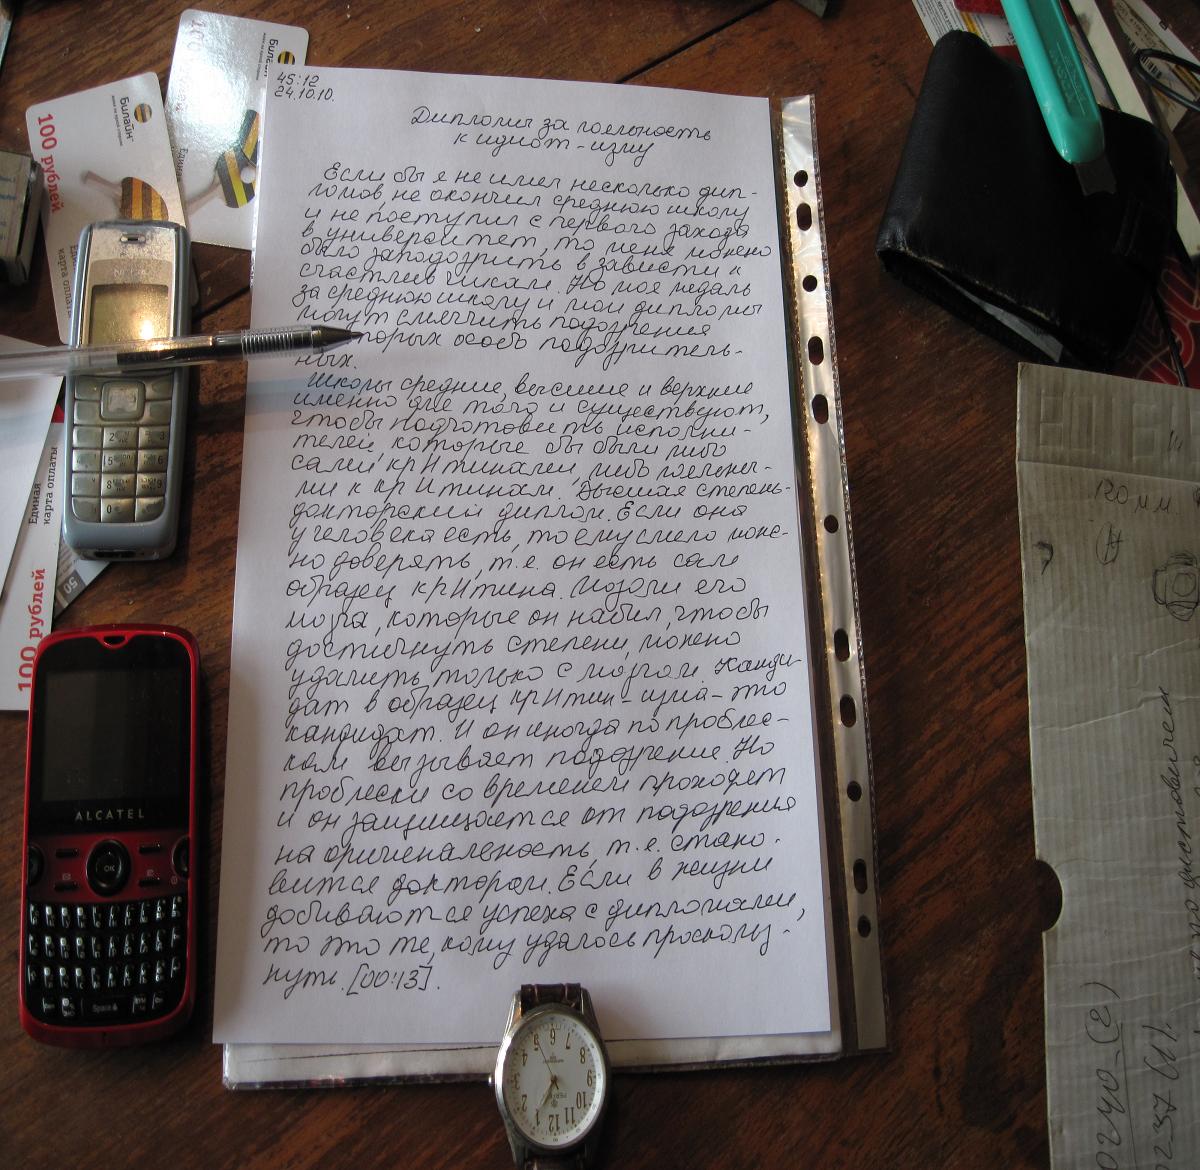 45:12
24.10.10.
Диплом за лояльность
к идиот-изму
Если бы я не имел несколько дип-
ломов, не окончил среднюю школу
и не поступил с первого захода
в университет, то меня можно
было заподозрить в зависти к
счастливчикам. Но моя медаль
за среднюю школу и мои дипломы
могут смягчить подозрения
которых особ подозритель-
ных.
Школы средние, высшие и верхние
именно для того и существуют,
чтобы подготовить исполни-
телей, которые бы были либо
сами крИтинами, либо лояльны-
ми к крИтинам. Высшая степень-
докторский диплом. Если она
у человека есть, то ему смело мож-
но доверять, т.е. он есть сам
образец крИтина. Мозоли его
мозга, которые он набил, чтобы
достигнуть степени, можно
удалить только с мозгом. Канди-
дат в образец крИтин-изма-это
кандидат. И он иногда по проблес-
кам вызывает подозрение. Но
проблески со временем проходят
и он защищается от подозрения
на оригинальность, т.е. стано-
вится доктором. Если в жизни
добиваются успеха с дипломами,
то это те, кому удалось проскольз-
нуть. [00:13].
Билайн
100 рублей
Билайн
100
Единая
карта оплаты
100 рублей
50
карта оплаты
NOKIA
ALCATEL
OK
Space
120 мм.
237 (И).
12
1
2
3
4
5
6
7
8
9
10
11